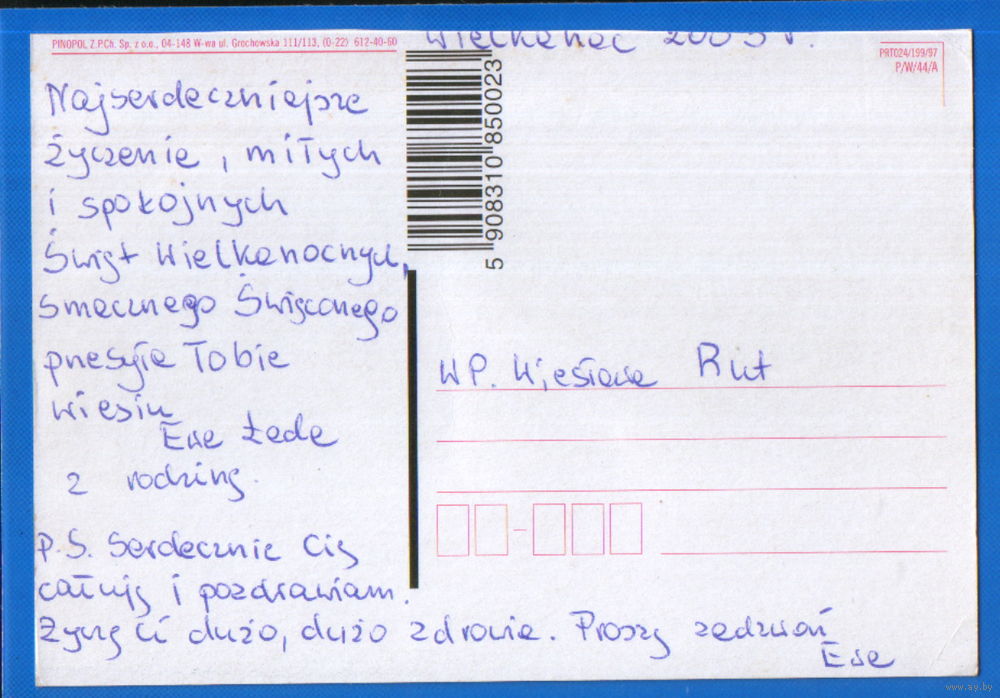 PINOPOL Z.P.Ch. Sp. z o.o., 04-148 W-wa ul. Grochowska 111/113, (0-22) 612-40-60
Wielkanoc 2003 r.
PRT024/199/97
P/W/44/A
Najserdeczniejsze
życzenia, miłych
i spokojnych
Świąt Wielkanocnych,
smacznego Święconego
przesyła Tobie
Wiesiu
Ewa Łada
z rodziną.
P.S. Serdecznie Cię
całuję i pozdrawiam.
Życzę Ci dużo, dużo zdrowia. Proszę zadzwoń
Ewa
5 908310 850023
WP. Wiesława Rut
www.ay.by